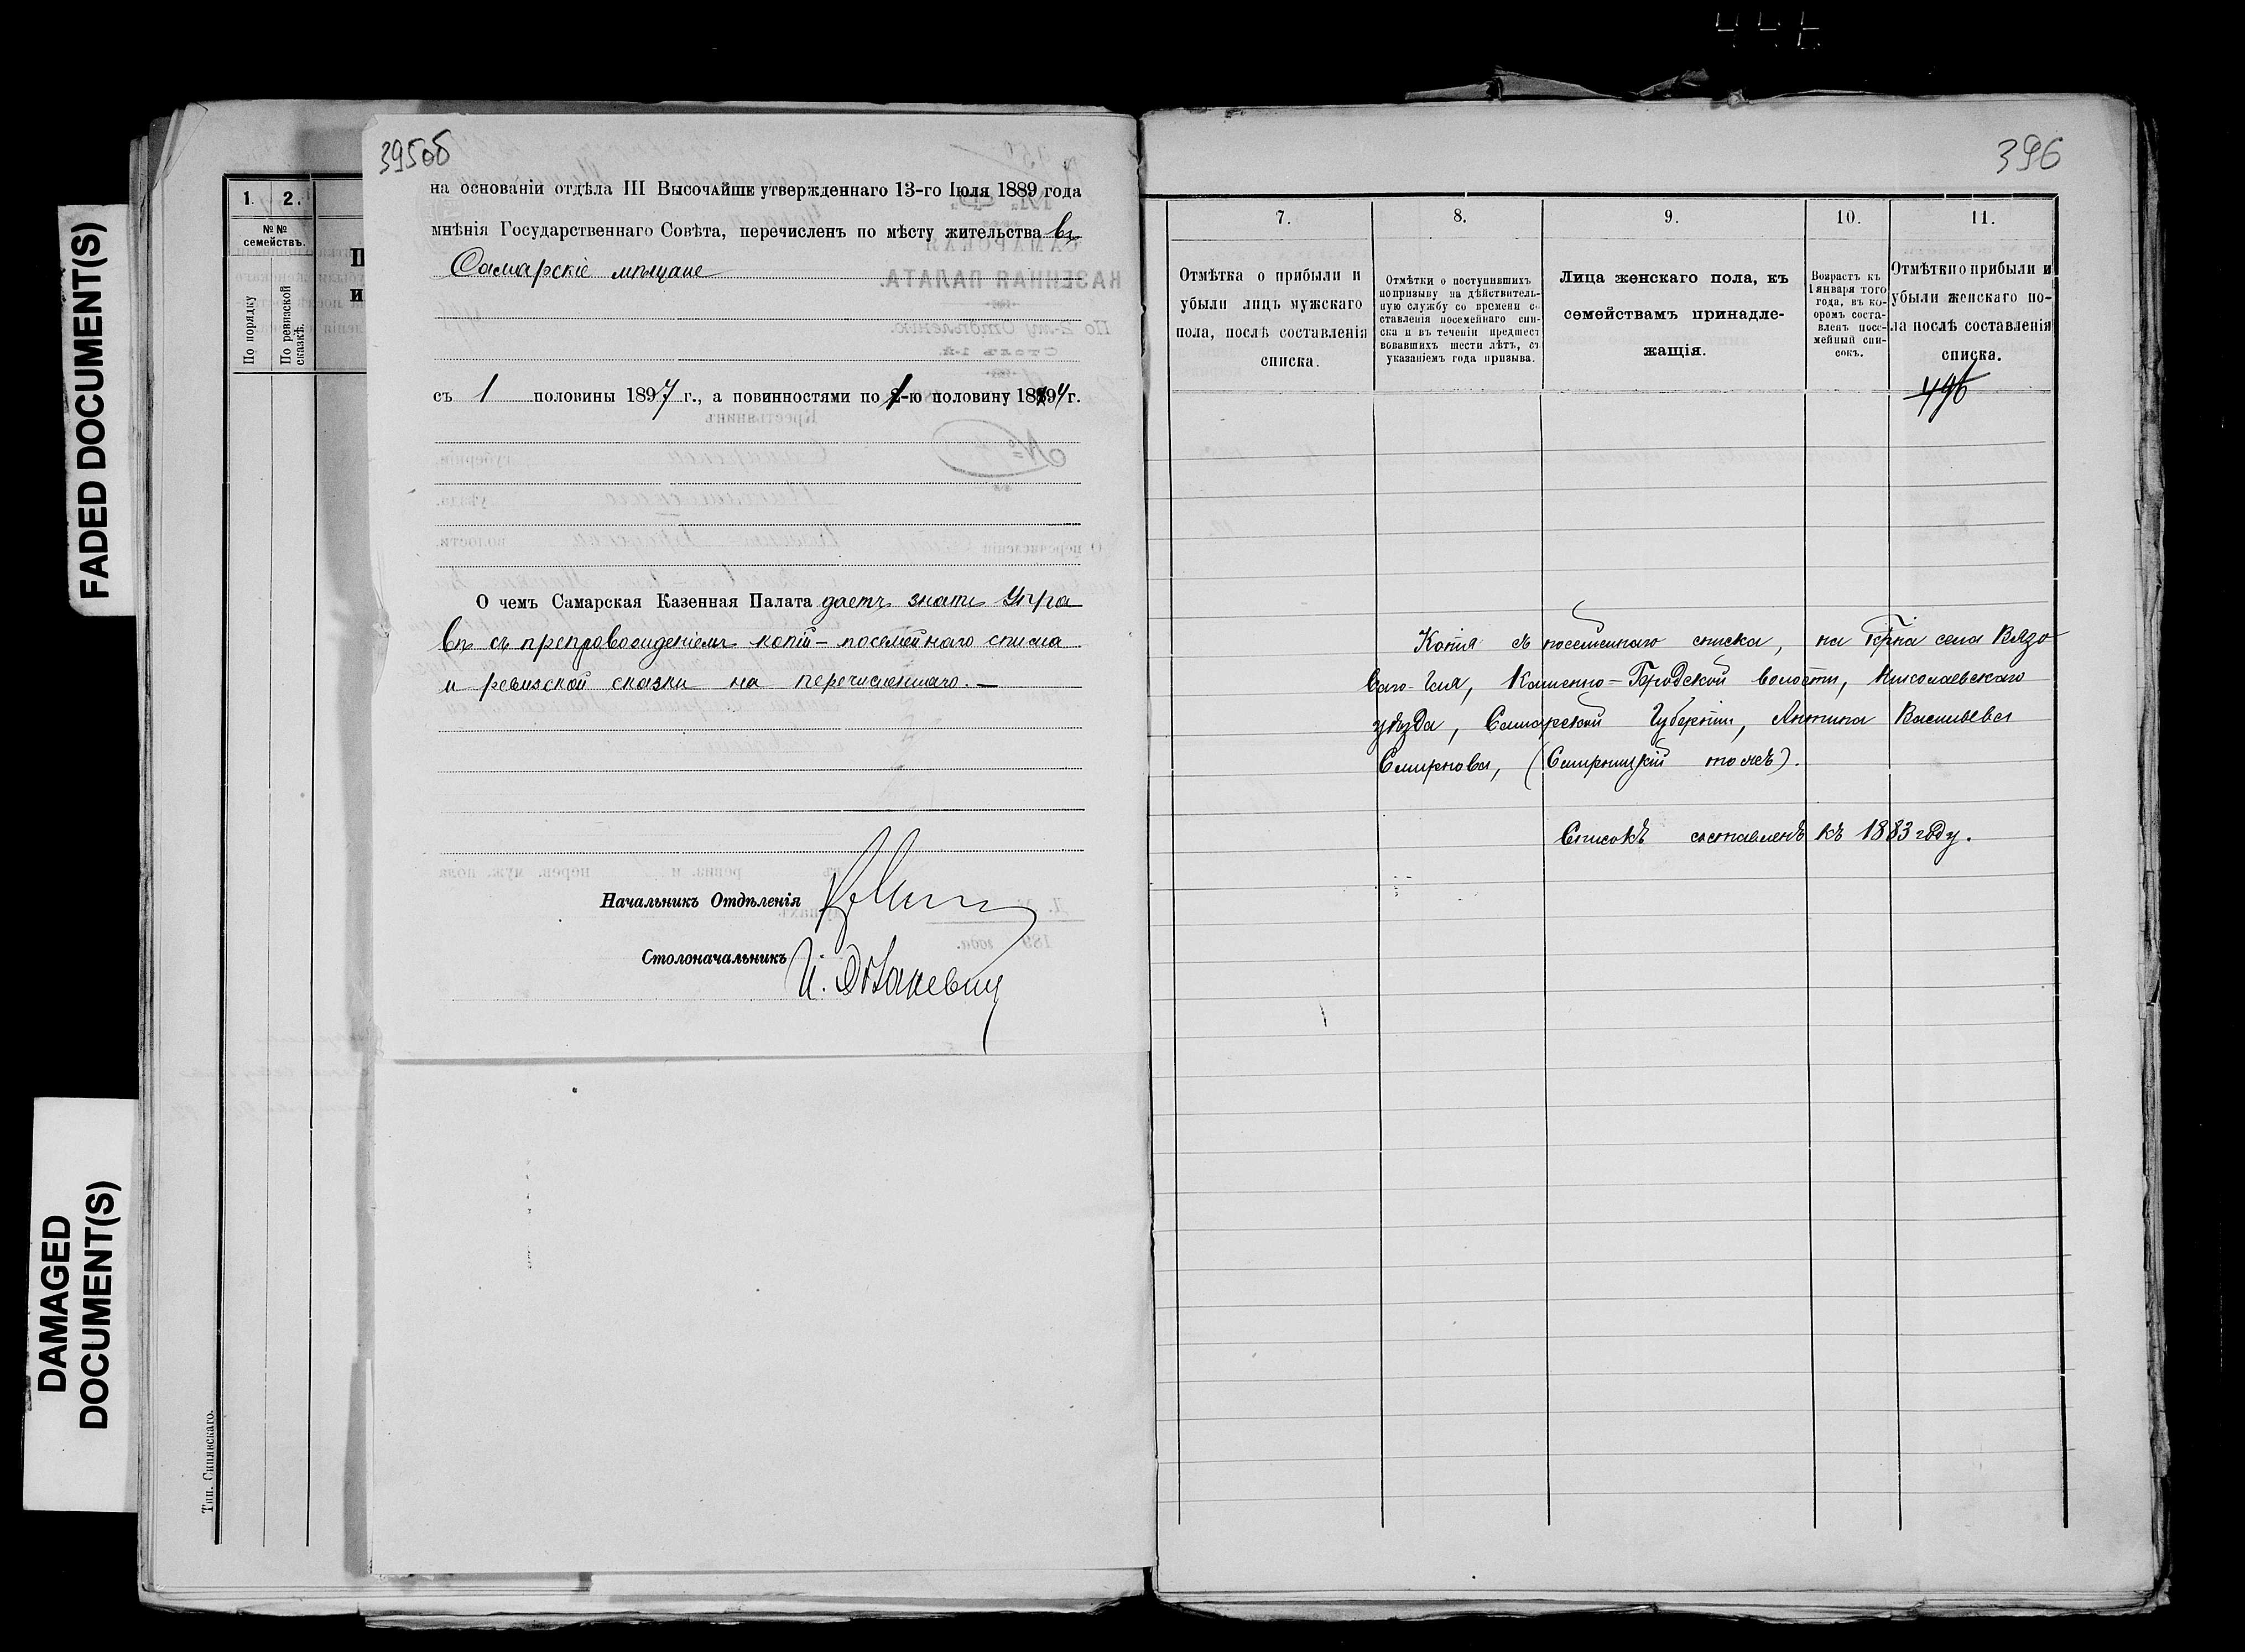 FADED DOCUMENT(S)
DAMAGED
DOCUMENT(S)
1. 2.
№№
семействъ.
По порядку
По ревизской
сказкѣ.
Тип. Синявскаго.
395об
на основаніи отдѣла III Высочайше утвержденнаго 13-го Іюля 1889 года
мнѣнія Государственнаго Совѣта, перечисленъ по мѣсту жительства въ
Самарскіе мѣщане
съ 1 половины 1897 г., а повинностями по 1-ю половину г.
О чемъ Самарская Казенная Палата даетъ знать Упра
вѣ съ препровожденіемъ копій посемейнаго списка
и ревизской сказки на перечисленнаго.
Начальникъ Отдѣленія
Столоначальникъ
396
7. 8. 9. 10. 11.
Отмѣтка о прибыли и
убыли лицъ мужскаго
пола, послѣ составленія
списка.
Отмѣтки о поступившихъ
по призыву на дѣйствитель-
ную службу со времени со
ставленія посемейнаго спи-
ска и въ теченіи предшест
вовавшихъ шести лѣтъ, съ
указаніемъ года призыва.
Лица женскаго пола, къ
семействамъ принадле-
жащія.
Возрастъ къ
1 января того
года, въ ко-
оромъ соста-
вленъ посе-
мейный спи-
сокъ.
Отмѣтки о прибыли и
убыли женскаго по-
ла послѣ составленія
списка.
496
Копія съ посемейнаго списка, на села Вязо
ваго-Гая, Каменно-Бродской волости, Николаевскаго
уѣзда, Самарской Губерніи, Антипа Васильева
Смирнова, (Смирницкій тожъ).
Списокъ составленъ къ 1883 году.